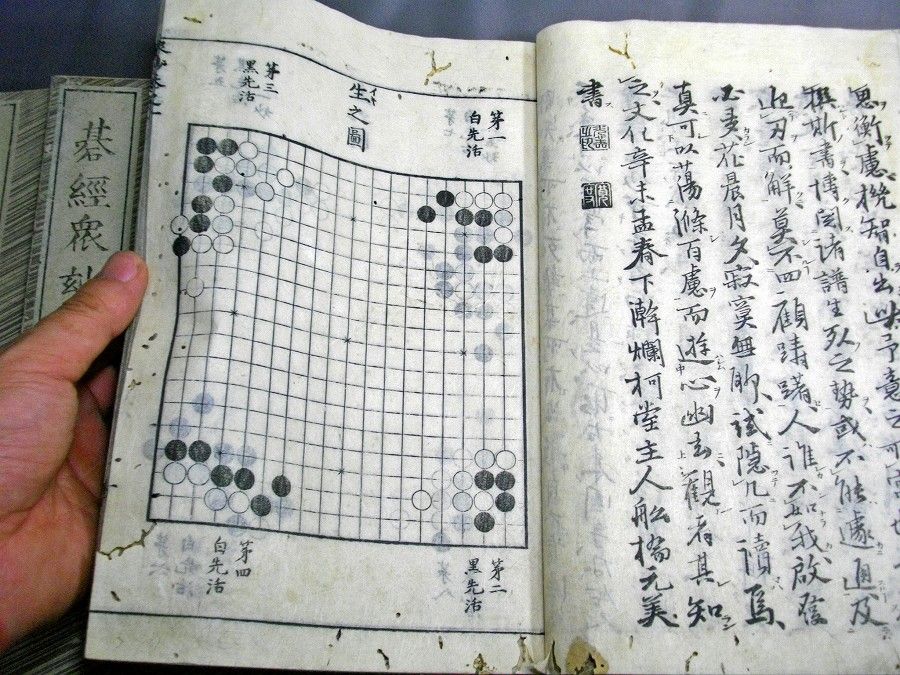 思衡慮挽智自出
撰斯書博閲諸譜生死之勢或不能遽通及
迎刃而解莫不四顧躊躇人誰不如我啟
心多花晨月夕寂寞無聊試隠几而讀焉
真可以蕩滌百慮而遊心幽玄觀者其知
之文化辛未孟春下澣爛柯堂主人舩橋元美
書
生之圖
第一
白先活
第二
黒先活
第三
黒先活
第四
白先活
碁經衆